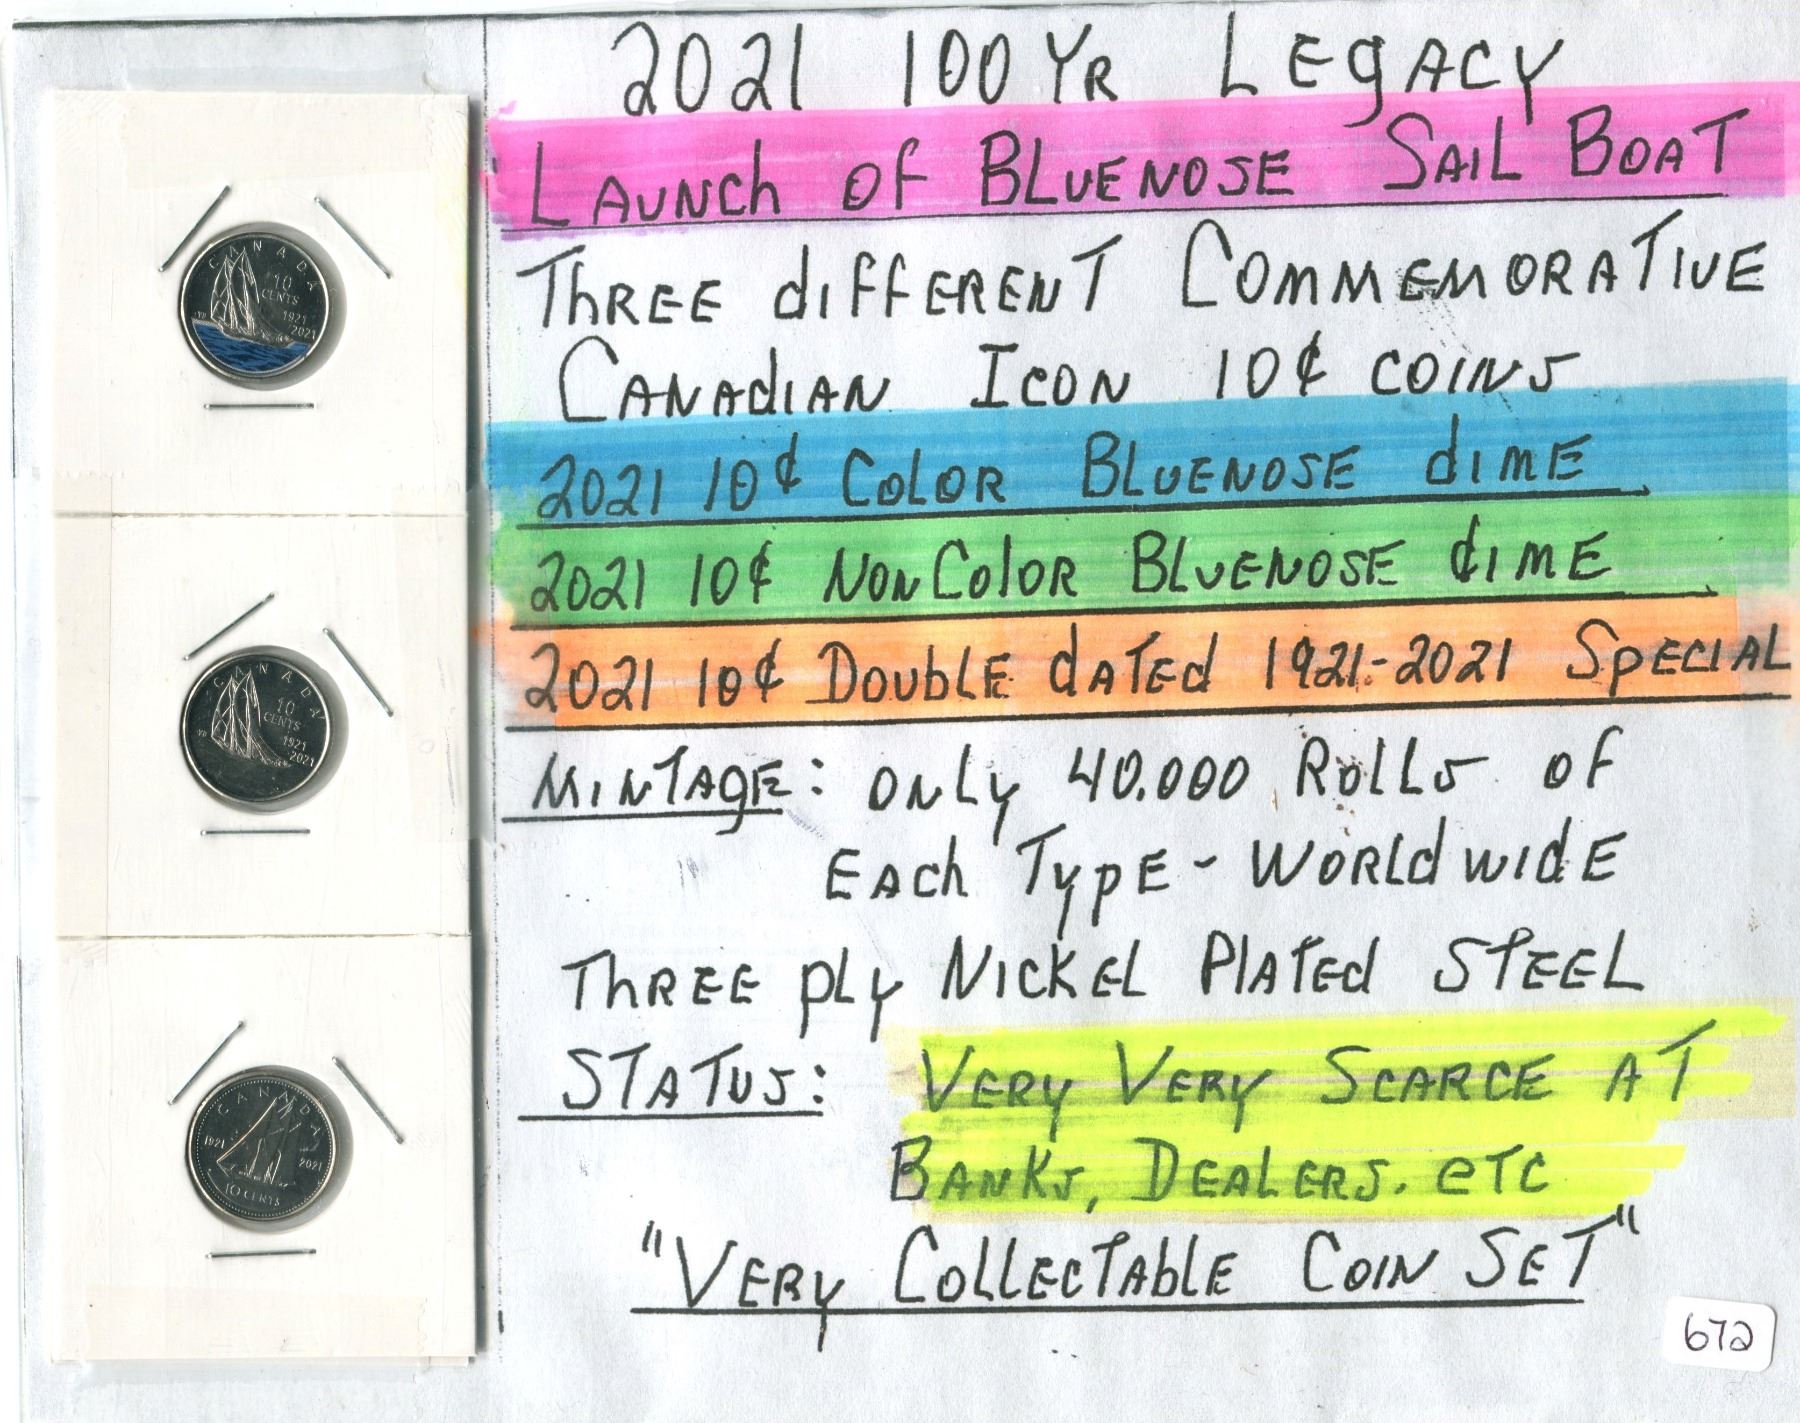 CANADA
10
CENTS
1921
2021
CANADA
10
CENTS
1921
2021
CANADA
1921
2021
10 CENTS
2021 100 YR LEGACY
LAUNCH OF BLUENOSE SAIL BOAT
THREE dIFFERENT COMMEMORATIVE
CANAdIAN ICON 10¢ COINS
2021 10¢ COLOR BLUENOSE dIME
2021 10¢ NON COlOR BLUENOSE dIME
2021 10¢ DOUBLE dATEd 1921-2021 SPECIAL
MINTAGE: ONLY 40,000 ROLLS OF
EACh TYPE - WORLdWIdE
THREE PLY NICKEL PLATEd STEEL
STATUS: VERY VERY SCARCE AT
BANKS, DEALERS. ETC
"VERY COLLECTABLE COIN SET"
672